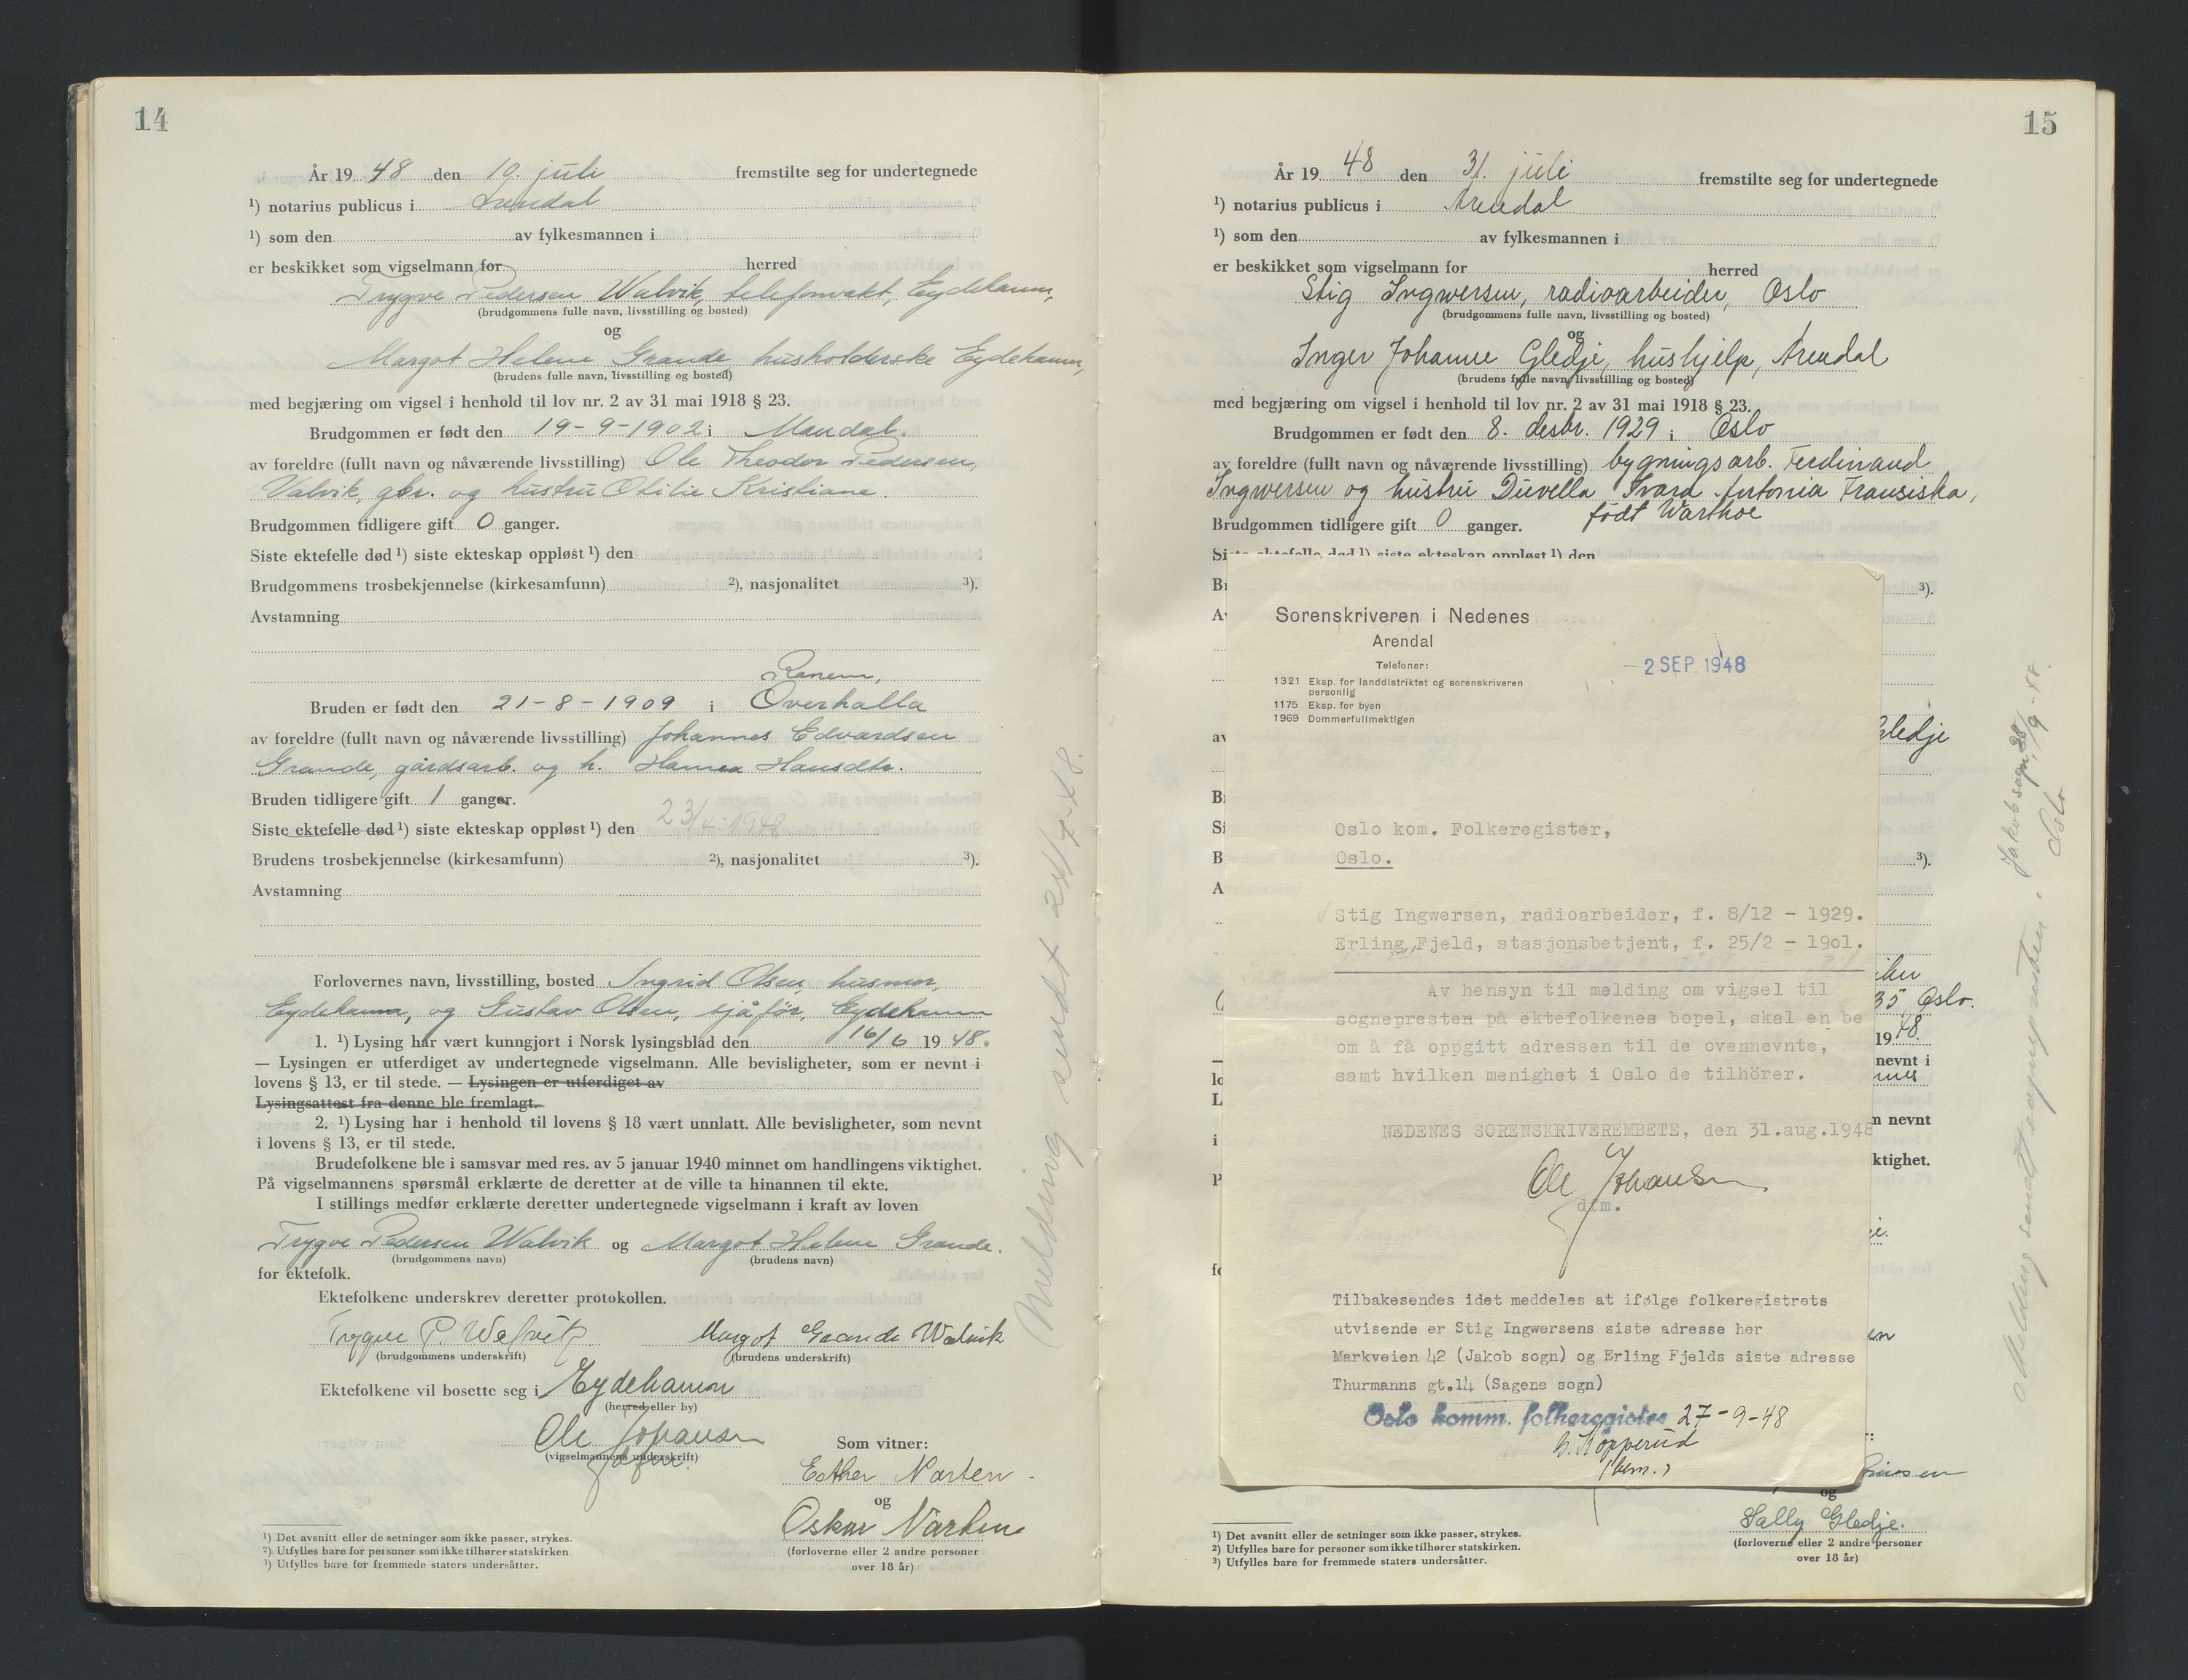 14
År 19 48 den 19. juli fremstilte seg for undertegnede
¹) notarius publicus i Arendal
¹) som den av fylkesmannen i
er beskikket som vigselmann for herred
Trygve Pedersen Walvik, telefonvakt, Eydehavn,
(brudgommens fulle navn, livsstilling og bosted)
og
Margot Helene Grande, husholderske Eydehavn,
(brudens fulle navn, livsstilling og bosted)
med begjæring om vigsel i henhold til lov nr. 2 av 31 mai 1918 § 23.
Brudgommen er født den 19-9-1902 i Mandal.
av foreldre (fullt navn og nåværende livsstilling) Ole Theodor Pedersen,
Valvik, gbr. og hustru Otilie Kristiane.
Brudgommen tidligere gift 0 ganger.
Siste ektefelle død ¹) siste ekteskap oppløst ¹) den
Brudgommens trosbekjennelse (kirkesamfunn) ²), nasjonalitet ³).
Avstamning
Ranem,
Bruden er født den 21-8-1909 i Overhalla
av foreldre (fullt navn og nåværende livsstilling) Johannes Edvardsen
Grande, gårdsarb. og h. Hansdtr.
Bruden tidligere gift 1 ganger.
Siste ektefelle død ¹) siste ekteskap oppløst ¹) den 23/4-1948
Brudens trosbekjennelse (kirkesamfunn) ²), nasjonalitet ³).
Avstamning
Forlovernes navn, livsstilling, bosted Ingrid Olsen, husmor,
Eydehavn, og Gustav Olsen, sjåfør, Eydehavn
1. ¹) Lysing har vært kunngjort i Norsk lysingsblad den 16/6 19 48.
— Lysingen er utferdiget av undertegnede vigselmann. Alle bevisligheter, som er nevnt i
lovens § 13, er til stede. — Lysingen er utferdiget av
Lysingsattest fra denne ble fremlagt.
2. ¹) Lysing har i henhold til lovens § 18 vært unnlatt. Alle bevisligheter, som nevnt
i lovens § 13, er til stede.
Brudefolkene ble i samsvar med res. av 5 januar 1940 minnet om handlingens viktighet.
På vigselmannens spørsmål erklærte de deretter at de ville ta hinannen til ekte.
I stillings medfør erklærte deretter undertegnede vigselmann i kraft av loven
Trygve Pedersen Walvik og Margot Helene Grande.
(brudgommens navn) (brudens navn)
for ektefolk.
Ektefolkene underskrev deretter protokollen.
Trygve P. Walvik Margot Grande Walvik
(brudgommens underskrift) (brudens underskrift)
Ektefolkene vil bosette seg i Eydehavn
(herred eller by)
Ole Johansen
(vigselmannens underskrift)
dfm.
Som vitner:
Esther Narten
og
Oskar Narten
(forloverne eller 2 andre personer
over 18 år)
¹) Det avsnitt eller de setninger som ikke passer, strykes.
²) Utfylles bare for personer som ikke tilhører statskirken.
³) Utfylles bare for fremmede staters undersåtter.
Melding sendt 24/7-48.
15
År 19 48 den 31. juli fremstilte seg for undertegnede
¹) notarius publicus i Arendal
¹) som den av fylkesmannen i
er beskikket som vigselmann for herred
Stig Ingwersen, radioarbeider, Oslo
(brudgommens fulle navn, livsstilling og bosted)
og
Inger Johanne Gledje, hushjelp, Arendal
(brudens fulle navn, livsstilling og bosted)
med begjæring om vigsel i henhold til lov nr. 2 av 31 mai 1918 § 23.
Brudgommen er født den 8. desbr. 1929 i Oslo
av foreldre (fullt navn og nåværende livsstilling) bygningsarb. Ferdinand
Ingwersen og hustru Duvella Antonia Fransiska,
Brudgommen tidligere gift 0 ganger. født Warthoe
Siste ektefelle død ¹) siste ekteskap oppløst ¹) den
³).
Sorenskriveren i Nedenes
Arendal
Telefoner:
1321 Eksp. for landdistriktet og sorenskriveren
personlig
1175 Eksp. for byen
1969 Dommerfullmektigen
-2 SEP. 1948
Gledje
Oslo kom. Folkeregister,
Oslo.
³).
Stig Ingwersen, radioarbeider, f. 8/12 - 1929.
Erling Fjeld, stasjonsbetjent, f. 25/2 - 19o1.
Av hensyn til melding om vigsel til
sognepresten på ektefolkenes bopel, skal en be
om å få oppgitt adressen til de ovennevnte,
samt hvilken menighet i Oslo de tilhörer.
35 Oslo.
19 48.
nevnt i
nevnt
ktighet.
NEDENES SORENSKRIVEREMBETE, den 31.aug.1948
Ole Johansen
dfm.
Tilbakesendes idet meddeles at ifølge folkeregistrets
utvisende er Stig Ingwersens siste adresse her
Markveien 42 (Jakob sogn) og Erling Fjelds siste adresse
Thurmanns gt.14 (Sagene sogn)
Oslo komm. folkeregister 27-9-48
og
Sally Gledje.
(forloverne eller 2 andre personer
over 18 år)
¹) Det avsnitt eller de setninger som ikke passer, strykes.
²) Utfylles bare for personer som ikke tilhører statskirken.
³) Utfylles bare for fremmede staters undersåtter.
Melding sendt sognepresten i Jakob sogn, 28/9-48.
Oslo